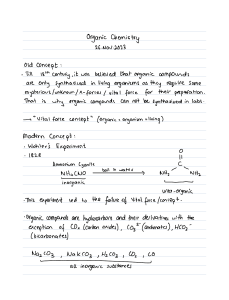 Organic Chemistry
26 Nov 2023
Old Concept:
- Till 18th century, it was believed that organic compounds
are only synthesized in living organisms as they require some
mysterious/unknown/x-forces/vital force for their preparation.
That is why organic compounds can not be synthesized in labs.
→ "Vital force concept" (organic: organism = living)
Modern Concept:
- Wohler's Experiment
- 1828
Ammonium Cyanate
NH4CNO
inorganic
boil in water
O
NH2
NH2
urea - organic
- This experiment led to the failure of vital force/concept.
- Organic compounds are hydrocarbons and their derivatives with the
exception of COx (carbon oxides), CO3²⁻ (carbonates), HCO3⁻
(bicarbonates)
Na2CO3, NaHCO3, H2CO3, CO2, CO
all inorganic substances